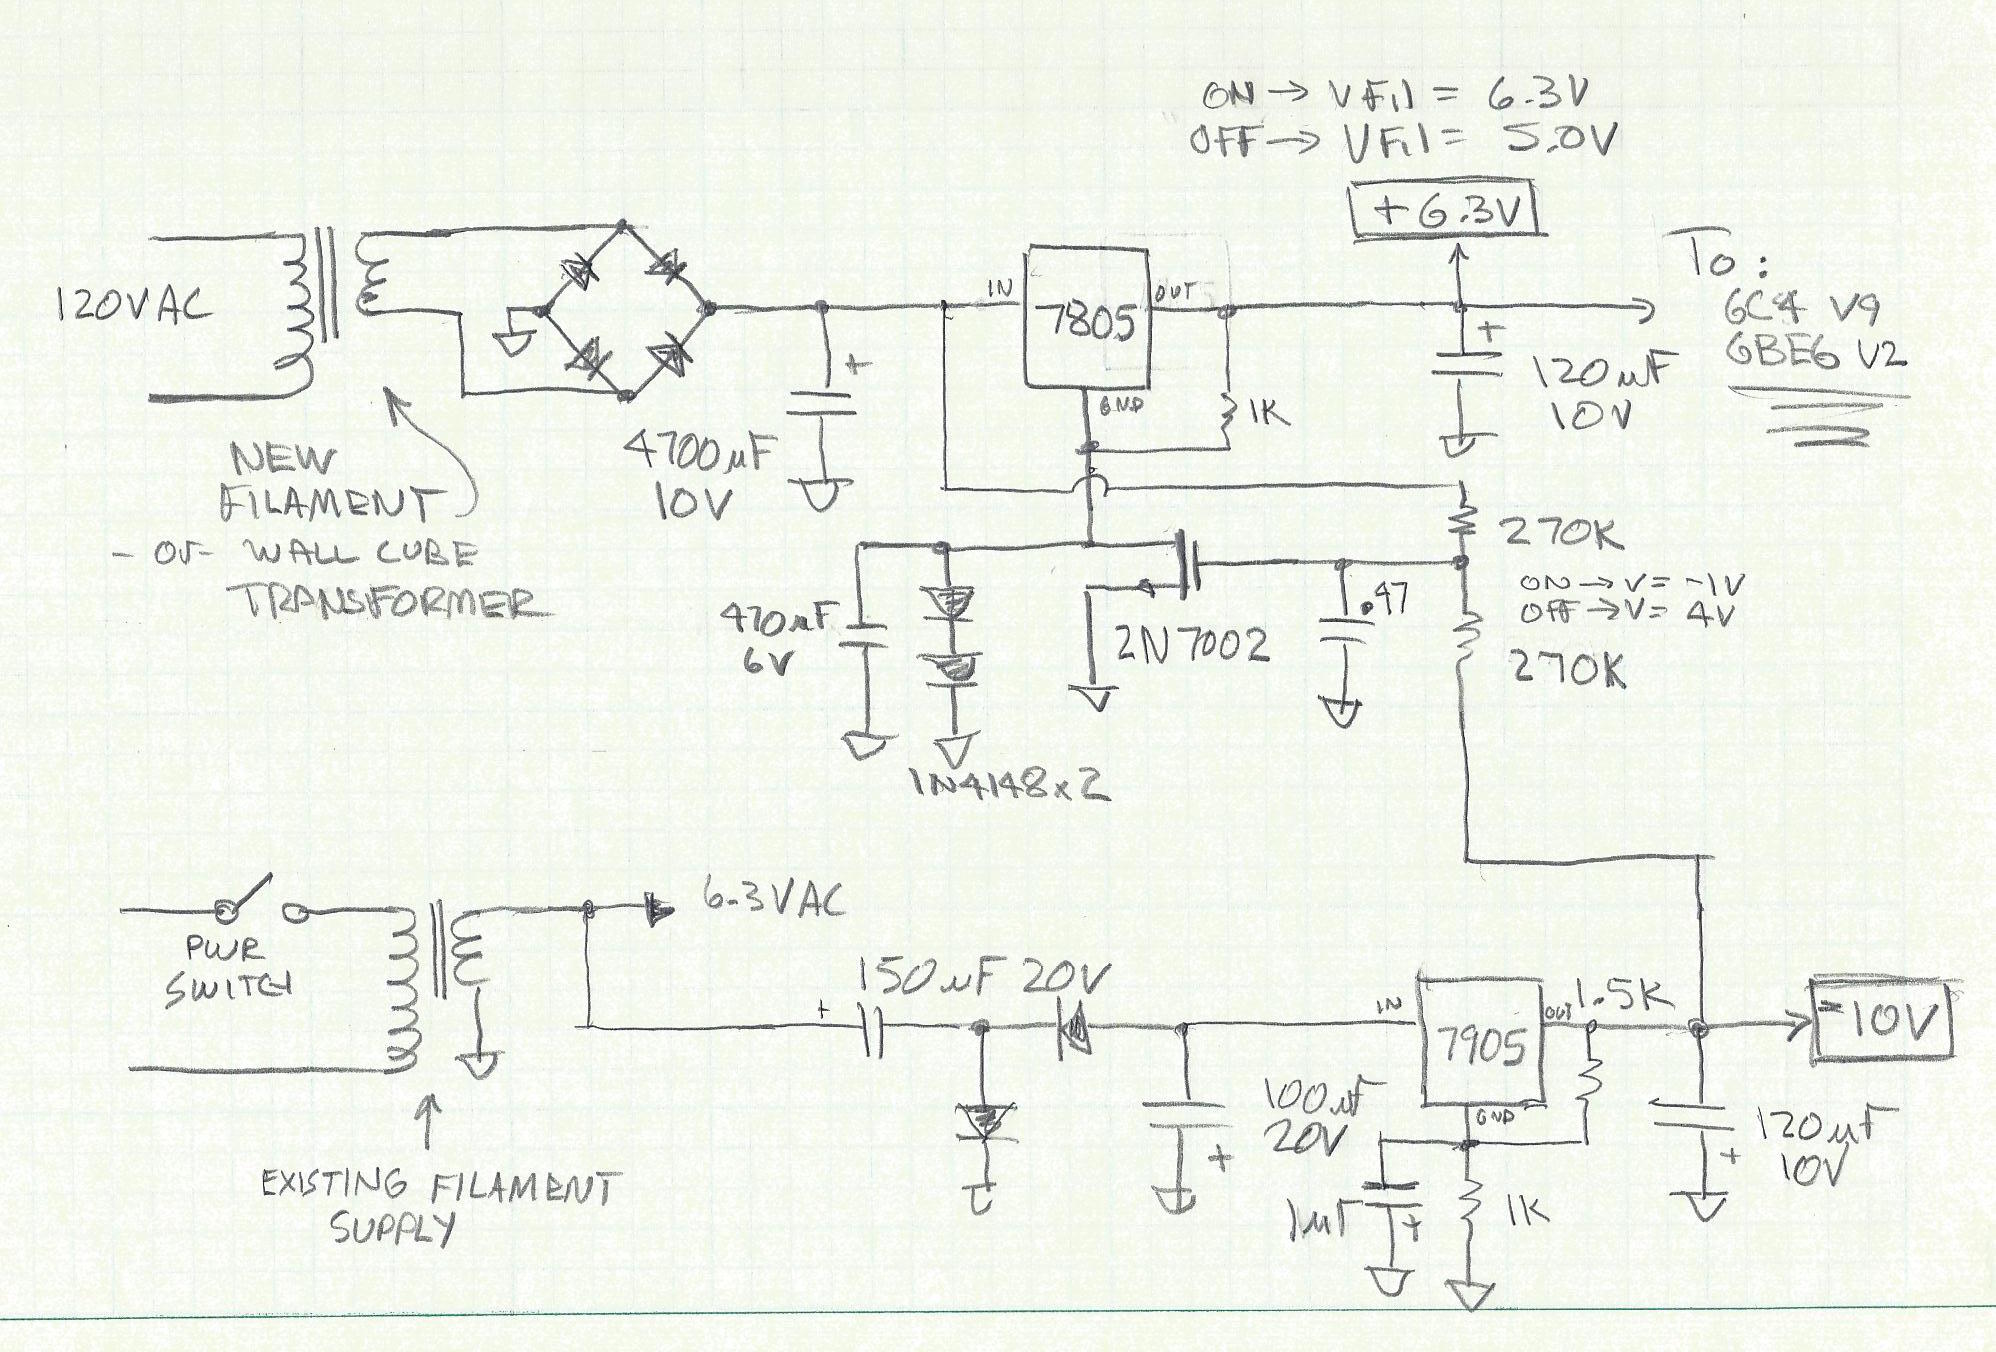 ON → VFil = 6.3V
OFF → VFil = 5.0V
+6.3V
To:
6C4 V9
6BE6 V2
120VAC
IN
7805
OUT
GND
1K
+
120uF
10V
+
4700uF
10V
NEW
FILAMENT
- or - WALL CUBE
TRANSFORMER
270K
ON → V= -1V
OFF → V= 4V
270K
.47
2N7002
470uF
6V
1N4148x2
PWR
SWITCH
6.3VAC
150uF 20V
+
IN
7905
OUT
1.5K
-10V
GND
100uF
20V
+
1uF
+
1K
120uF
10V
+
EXISTING FILAMENT
SUPPLY